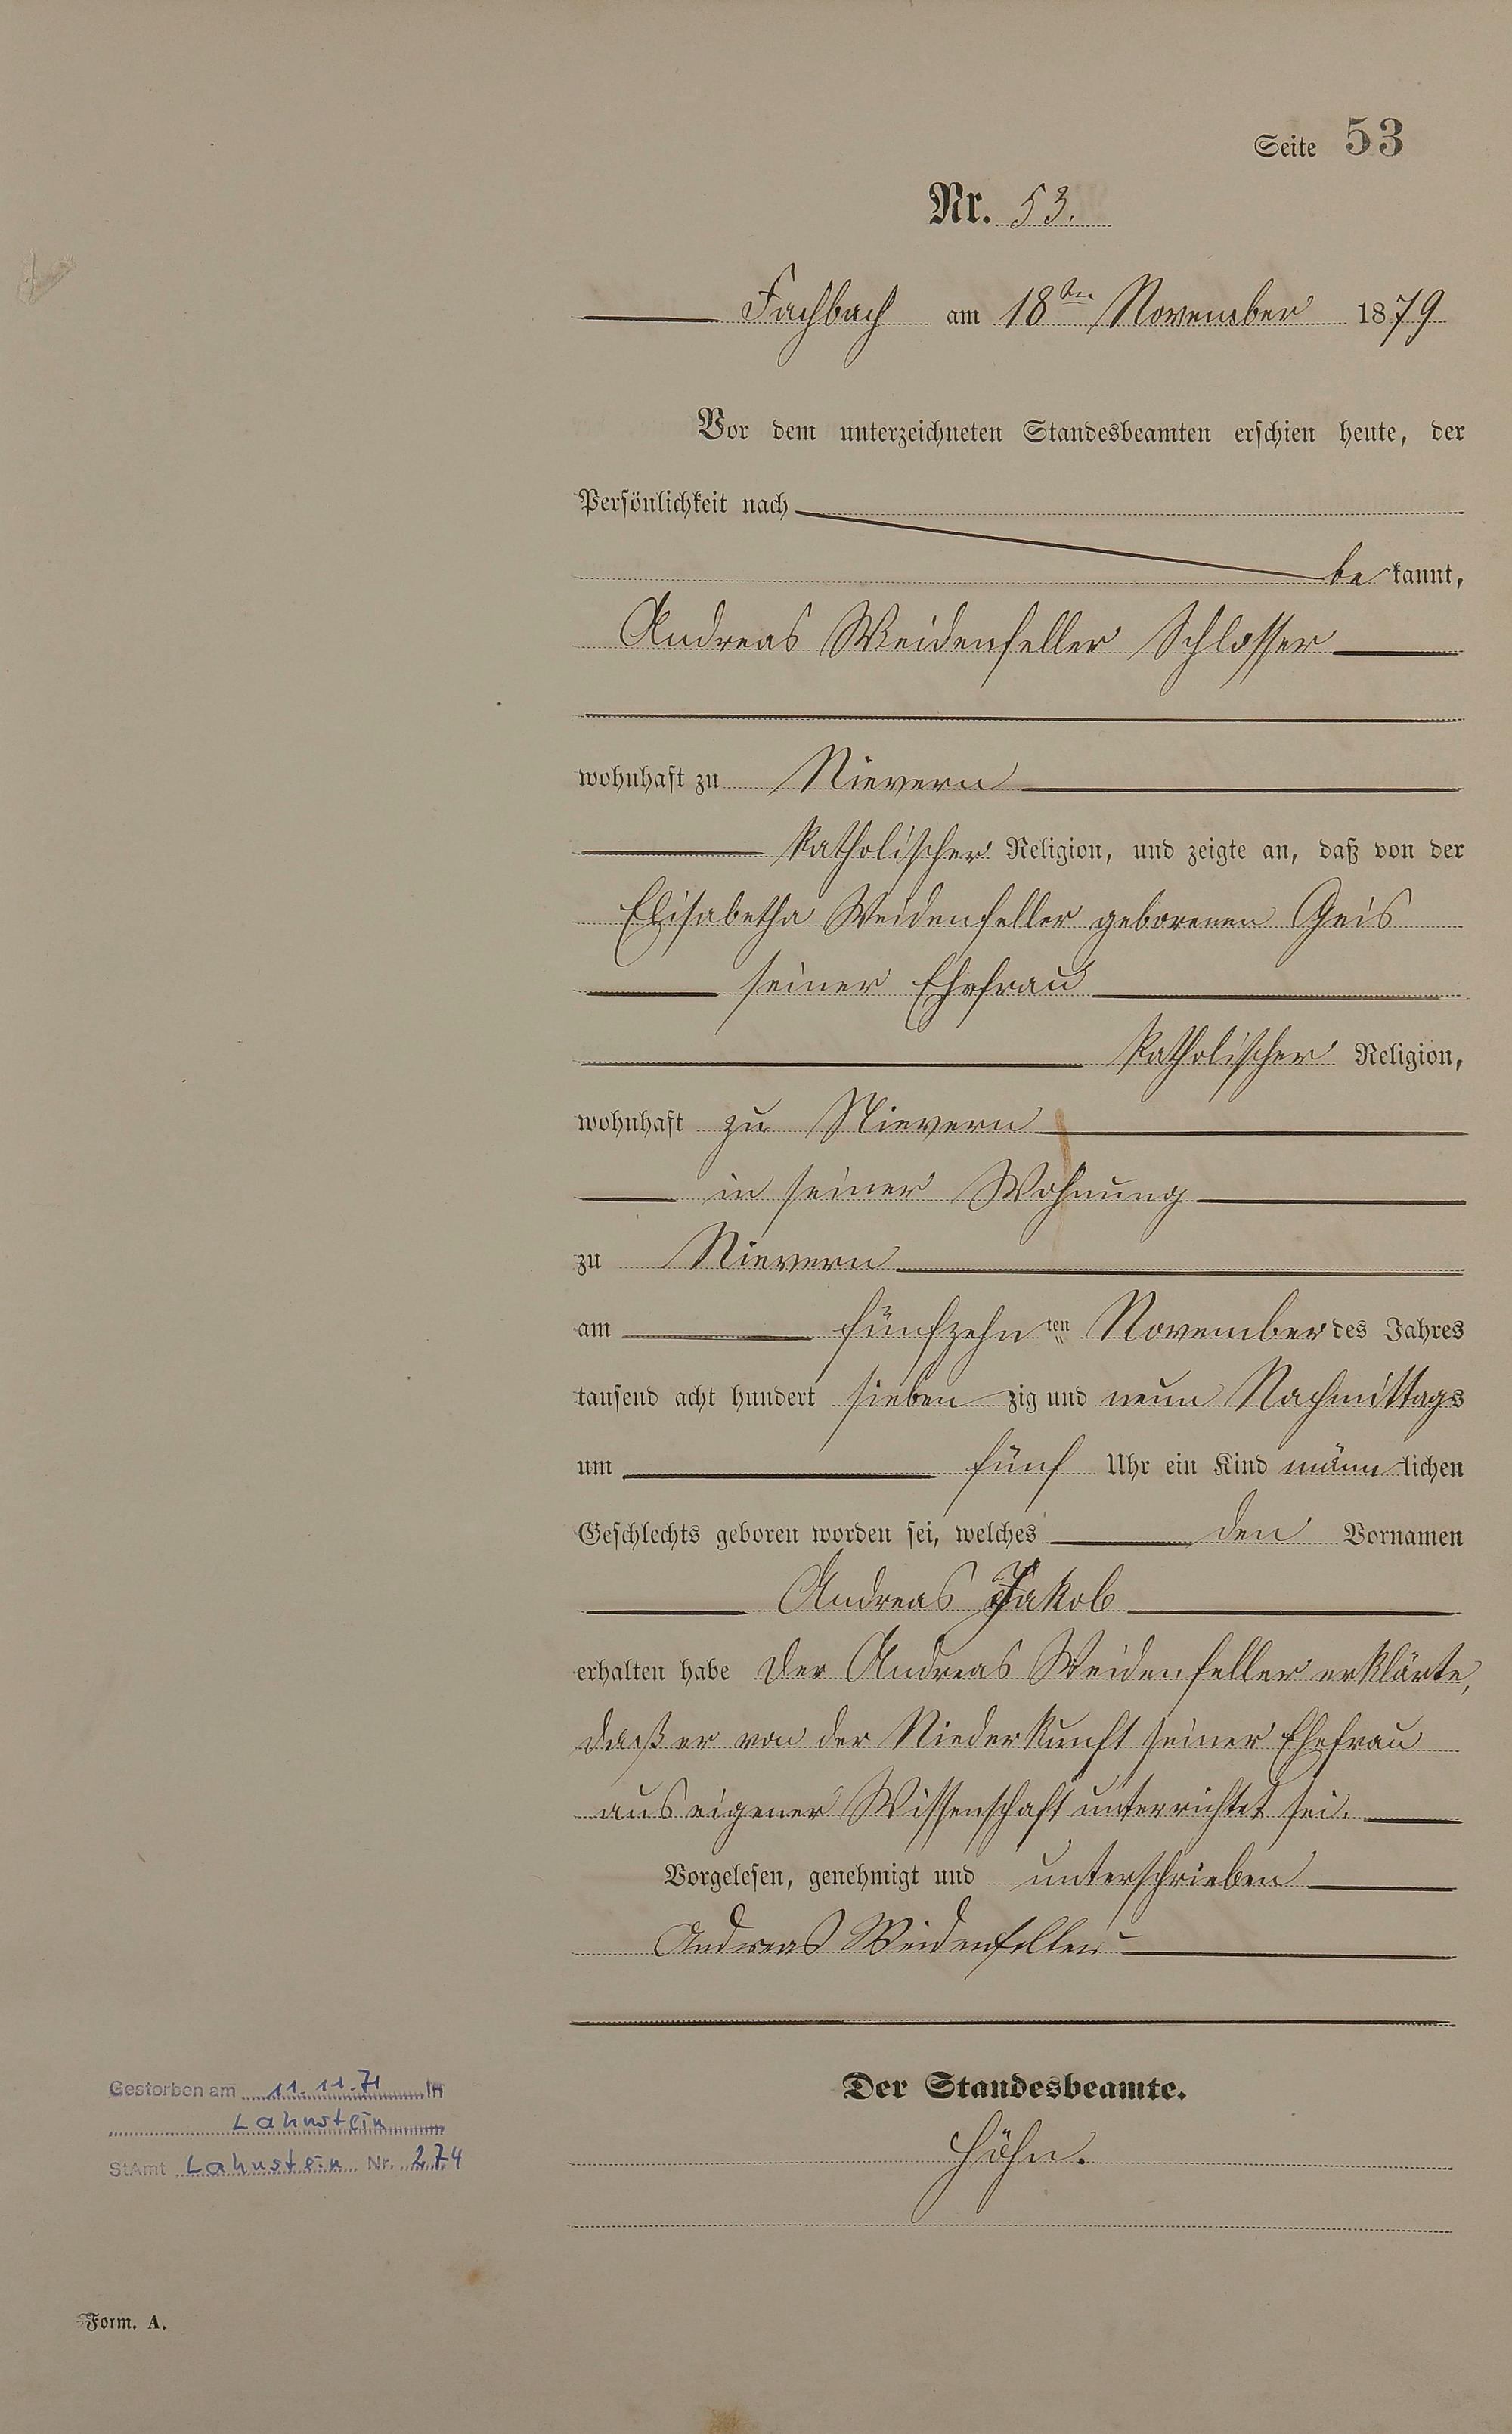 Seite 53
Nr. 53.
Fachbach am 18ten November 1879
Vor dem unterzeichneten Standesbeamten erschien heute, der
Persönlichkeit nach
be kannt,
Andreas Weidenfeller Schlosser
wohnhaft zu Nievern
katholischer Religion, und zeigte an, daß von der
Elisabetha Weidenfeller geborenen Geis
seiner Ehefrau
katholischer Religion,
wohnhaft zu Nievern
in seiner Wohnung
zu Nievern
am fünfzehn ten November des Jahres
tausend acht hundert sieben zig und neun Nachmittags
um fünf Uhr ein Kind männ lichen
Geschlechts geboren worden sei, welches den Vornamen
Andreas Jakob
erhalten habe Der Andreas Weidenfeller erklärte,
daß er von der Niederkunft seiner Ehefrau
aus eigener Wissenschaft unterrichtet sei.
Vorgelesen, genehmigt und unterschrieben
Andreas Weidenfeller
Der Standesbeamte.
Höhn.
Gestorben am 11.11.71 in
Lahnstein
StAmt Lahnstein Nr. 274
Form. A.